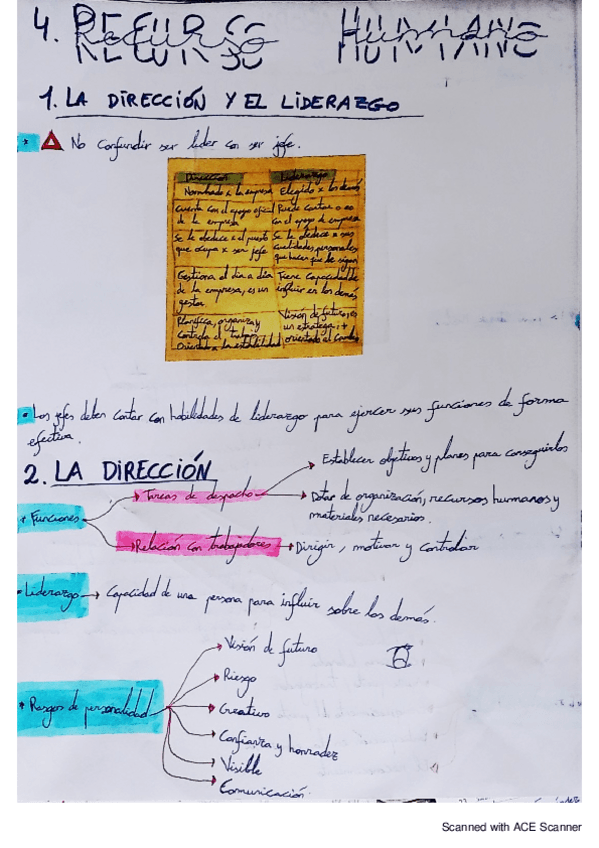 4. RECURSO HUMANO
1. LA DIRECCIÓN Y EL LIDERAZGO
No confundir ser líder con ser jefe.
Dirección Liderazgo
Nombrado x la empresa Elegido x los demás
Cuenta con el apoyo oficial de la empresa Puede contar o no con el apoyo de empresa
Se le obedece x el puesto que ocupa x ser jefe Se le obedece x sus cualidades personales que hacen que le sigan
Gestiona el día a día de la empresa, es un gestor Tiene capacidad de influir en los demás
Planifica, organiza y controla el trabajo Orientado a la estabilidad Visión de futuro, es un estratega, + orientado al cambio
Los jefes deben contar con habilidades de liderazgo para ejercer sus funciones de forma
efectiva.
2. LA DIRECCIÓN
Funciones
Tareas de despacho
Establecer objetivos y planes para conseguirlos
Dotar de organización, recursos humanos y
materiales necesarios.
Relación con trabajadores
Dirigir, motivar y controlar
Liderazgo → Capacidad de una persona para influir sobre los demás.
Rasgos de personalidad
Visión de futuro
Riesgo
Creativo
Confianza y honradez
Visible
Comunicación
Scanned with ACE Scanner